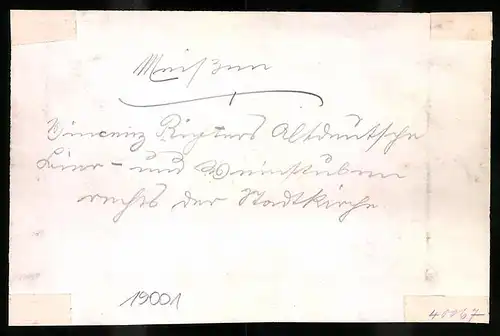 Meißen
Vincenz Richters Altdeutsche
Bier- und Weinstuben
rechts der Stadtkirche.
19001